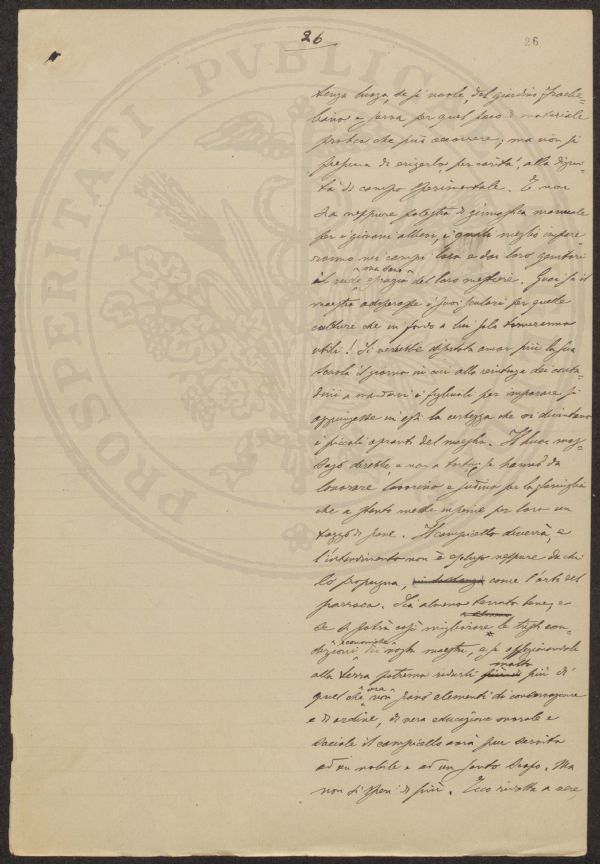 26
26
tenga luogo, se si vuole, del giardino Froebe-
liano e serva per quel poco di materiale
pratica che può occorrere; ma non si
pretenda di erigerlo, per carità, alla digni-
tà di campo sperimentale. E non
sia neppure palestra di ginnastica manuale
per i giovani allievi, i quali meglio impare-
ranno nei campi loro e dai loro genitori
il rude del loro mestiere. Guai se il
maestro adoperasse i suoi scolari per quelle
culture che in fondo a lui solo torneranno
utili! Si vedrebbe disertata ancor più la sua
scuola il giorno in cui alla reluttanza dei conta-
dini a mandarvi i figliuoli per imparare si
aggiungesse in essi la certezza che vi diventano
i piccoli operanti del maestro. Il buon
direbbe, e non a torto: se hanno da
lavorare lavorino e sudino per la famiglia
che a stento mette insieme per loro un
tozzo di pane. Il campicello diverrà, e
l'intendimento non è escluso neppure da chi
lo propugna, come l'orto del
parroco. Sia almeno tenuto bene, e
se si potrà così migliorare le tristi con-
dizioni economiche dei nostri maestri, e se affezionandoli
alla terra potremo renderli molto più di
quel che ora non siano elementi di conservazione
e di ordine, di vera educazione morale e
sociale il campicello avrà pur servito
ad un nobile e ad un santo scopo. Ma
non si speri di più. Ecco
PROSPERITATI PVBLICAE